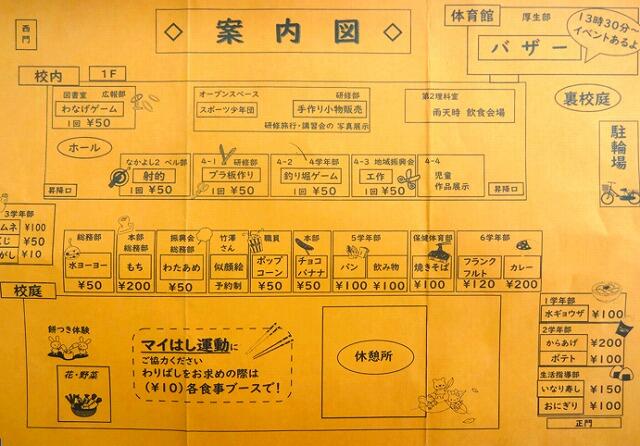 案内図
西門
体育館 厚生部
バザー
13時30分～
イベントあるよ
校内 1F
図書室 広報部
わなげゲーム
1回 ¥50
オープンスペース 研修部
スポーツ少年団 手作り小物販売
研修旅行・講習会の 写真展示
第2理科室
雨天時 飲食会場
裏校庭
駐輪場
ホール
昇降口
なかよし2 ベル部
射的
1回 ¥50
4-1 研修部
プラ板作り
1回 ¥50
4-2 4学年部
釣り堀ゲーム
1回 ¥50
4-3 地域振興会
工作
1回 ¥50
4-4
児童
作品展示
昇降口
3学年部
ムネ ¥100
くじ ¥50
がし ¥10
総務部
水ヨーヨー
¥50
本部
総務部
もち
¥200
振興会
総務部
わたあめ
¥50
竹澤
さん
似顔絵
予約制
職員
ポップ
コーン
¥50
本部
チョコ
バナナ
¥50
5学年部
パン 飲み物
¥100 ¥100
保健体育部
焼きそば
¥100
6学年部
フランク
フルト カレー
¥120 ¥200
校庭
餅つき体験
花・野菜
マイはし運動に
ご協力ください
わりばしをお求めの際は
(¥10)各食事ブースで!
休憩所
1学年部
水ギョウザ ¥100
2学年部
からあげ ¥200
ポテト ¥100
生活指導部
いなり寿し ¥150
おにぎり ¥100
正門